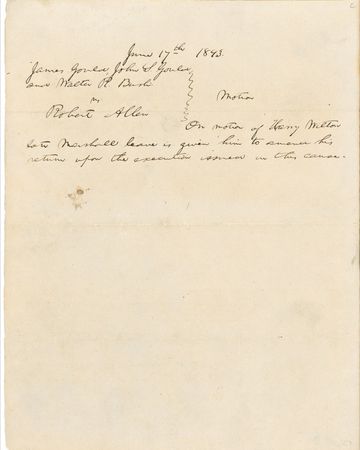 June 17th 1843.
James Gould John S Gould
and Walter R. Bush
vs
Motion
Robert Allen
On motion of Harry Wilton
late Marshall leave is given him to amend his
return upon the execution issued in this cause.